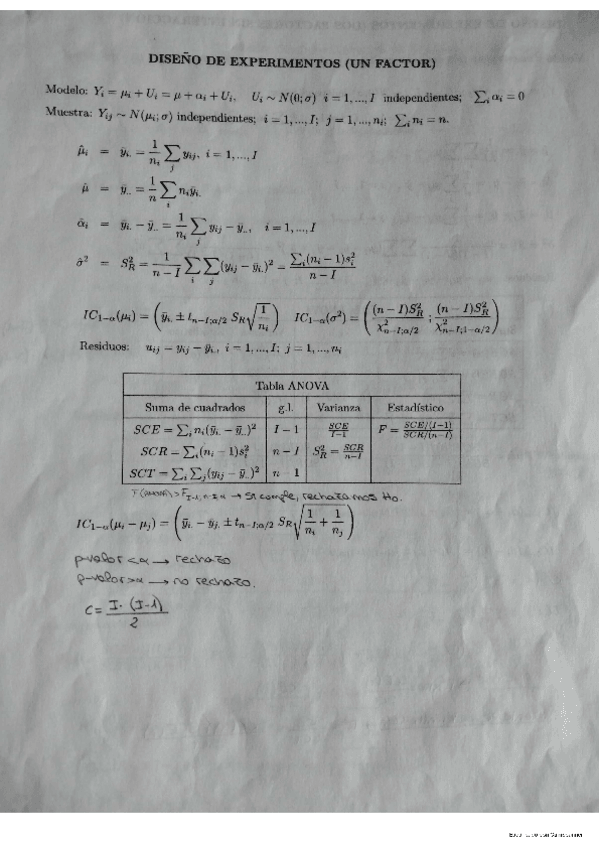 DISEÑO DE EXPERIMENTOS (UN FACTOR)
Modelo: Y_i = μ_i + U_i = μ + α_i + U_i, U_i ~ N(0; σ) i = 1, ..., I independientes; ∑_i α_i = 0
Muestra: Y_ij ~ N(μ_i; σ) independientes; i = 1, ..., I; j = 1, ..., n_i; ∑_i n_i = n.
μ̂_i = ȳ_i. = 1/n_i ∑_j y_ij, i = 1, ..., I
μ̂ = ȳ.. = 1/n ∑_i n_i ȳ_i.
α̂_i = ȳ_i. − ȳ.. = 1/n_i ∑_j y_ij − ȳ.., i = 1, ..., I
σ̂² = S²_R = 1/(n − I) ∑_i ∑_j (y_ij − ȳ_i.)² = ∑_i(n_i − 1)s²_i / (n − I)
IC_1−α(μ_i) = (ȳ_i. ± t_n−I;α/2 S_R √(1/n_i)) IC_1−α(σ²) = ((n − I)S²_R / χ²_n−I;α/2 ; (n − I)S²_R / χ²_n−I;1−α/2)
Residuos: u_ij = y_ij − ȳ_i., i = 1, ..., I; j = 1, ..., n_i
Tabla ANOVA
Suma de cuadrados g.l. Varianza Estadístico
SCE = ∑_i n_i(ȳ_i. − ȳ..)² I − 1 SCE/(I−1) F = SCE/(I−1) / SCR/(n−I)
SCR = ∑_i(n_i − 1)s²_i n − I S²_R = SCR/(n−I)
SCT = ∑_i ∑_j(y_ij − ȳ..)² n − 1
> F_I-1, n-I, α → Si cumple, rechazamos Ho.
IC_1−α(μ_i − μ_j) = (ȳ_i. − ȳ_j. ± t_n−I;α/2 S_R √(1/n_i + 1/n_j))
p-valor < α → rechazo
p-valor > α → no rechazo.
C = I · (I-1) / 2